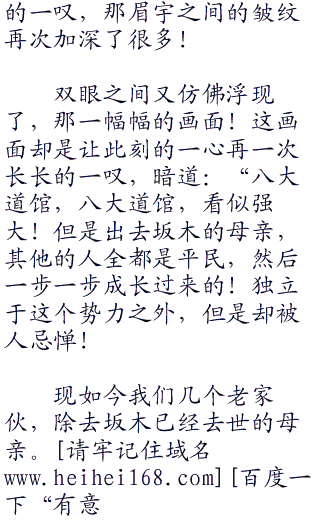 的一叹，那眉宇之间的皱纹
再次加深了很多！
双眼之间又仿佛浮现
了，那一幅幅的画面！这画
面却是让此刻的一心再一次
长长的一叹，暗道：“八大
道馆，八大道馆，看似强
大！但是出去坂木的母亲，
其他的人全都是平民，然后
一步一步成长过来的！独立
于这个势力之外，但是却被
人忌惮！
现如今我们几个老家
伙，除去坂木已经去世的母
亲。[请牢记住域名
www.heihei168.com][百度一
下“有意